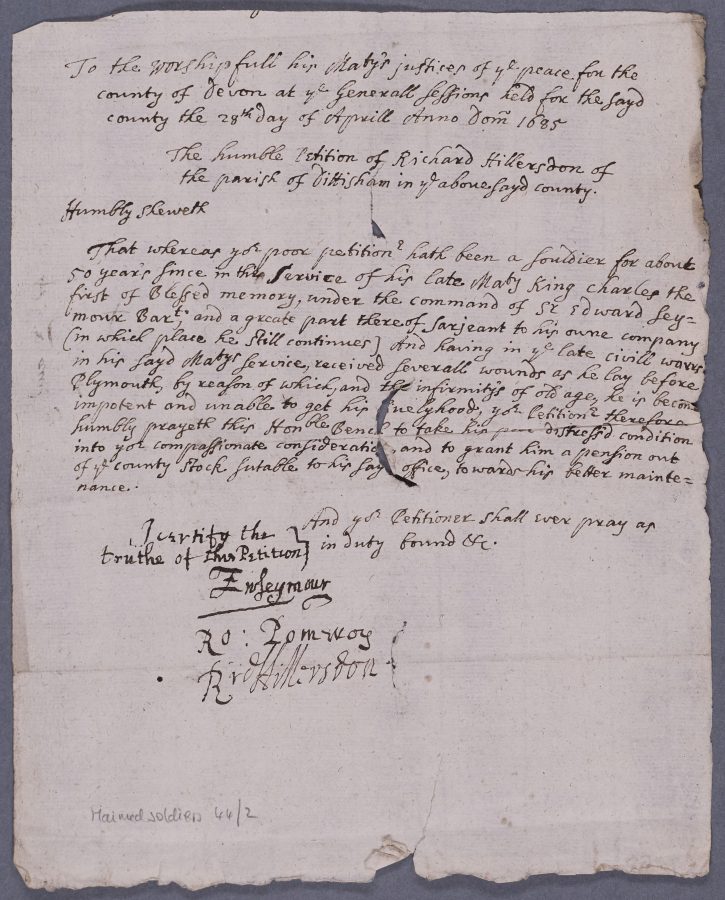 To the worshipfull his Matys justices of ye peace for the
county of Devon at ye Generall Sessions held for the sayd
county the 28th day of Aprill Anno Dom 1685
The humble Petition of Richard Hillersdon of
the parish of Dittisham in ye above sayd county.
Humbly sheweth
That whereas yor poor petitionr hath been a souldier for about
50 years since in the Service of his late Maty King Charles the
first of Blessed memory, under the command of Sr Edward Sey=
mour Bart; and a greate part thereof Sarjeant to his owne company
(in which place he still continues) And having in ye late civill warrs
in his sayd Matys service, received severall wounds as he lay before
Plymouth, by reason of which, and the infirmitys of old age, he is become
impotent and unable to get his livelyhood, yor Petitionr therefore
humbly prayeth this Honble Bench to take his poor distressd condition
into yor compassionate consideration, and to grant him a pension out
of ye county stock sutable to his sayd office, towards his better mainte=
nance.
And yor Petitioner shall ever pray as
in duty bound &c.
I certify the
truthe of this Petition
Ed Seymour
Ro: Pomeroy
Rid Hillersdon
Maimed soldiers 44/2